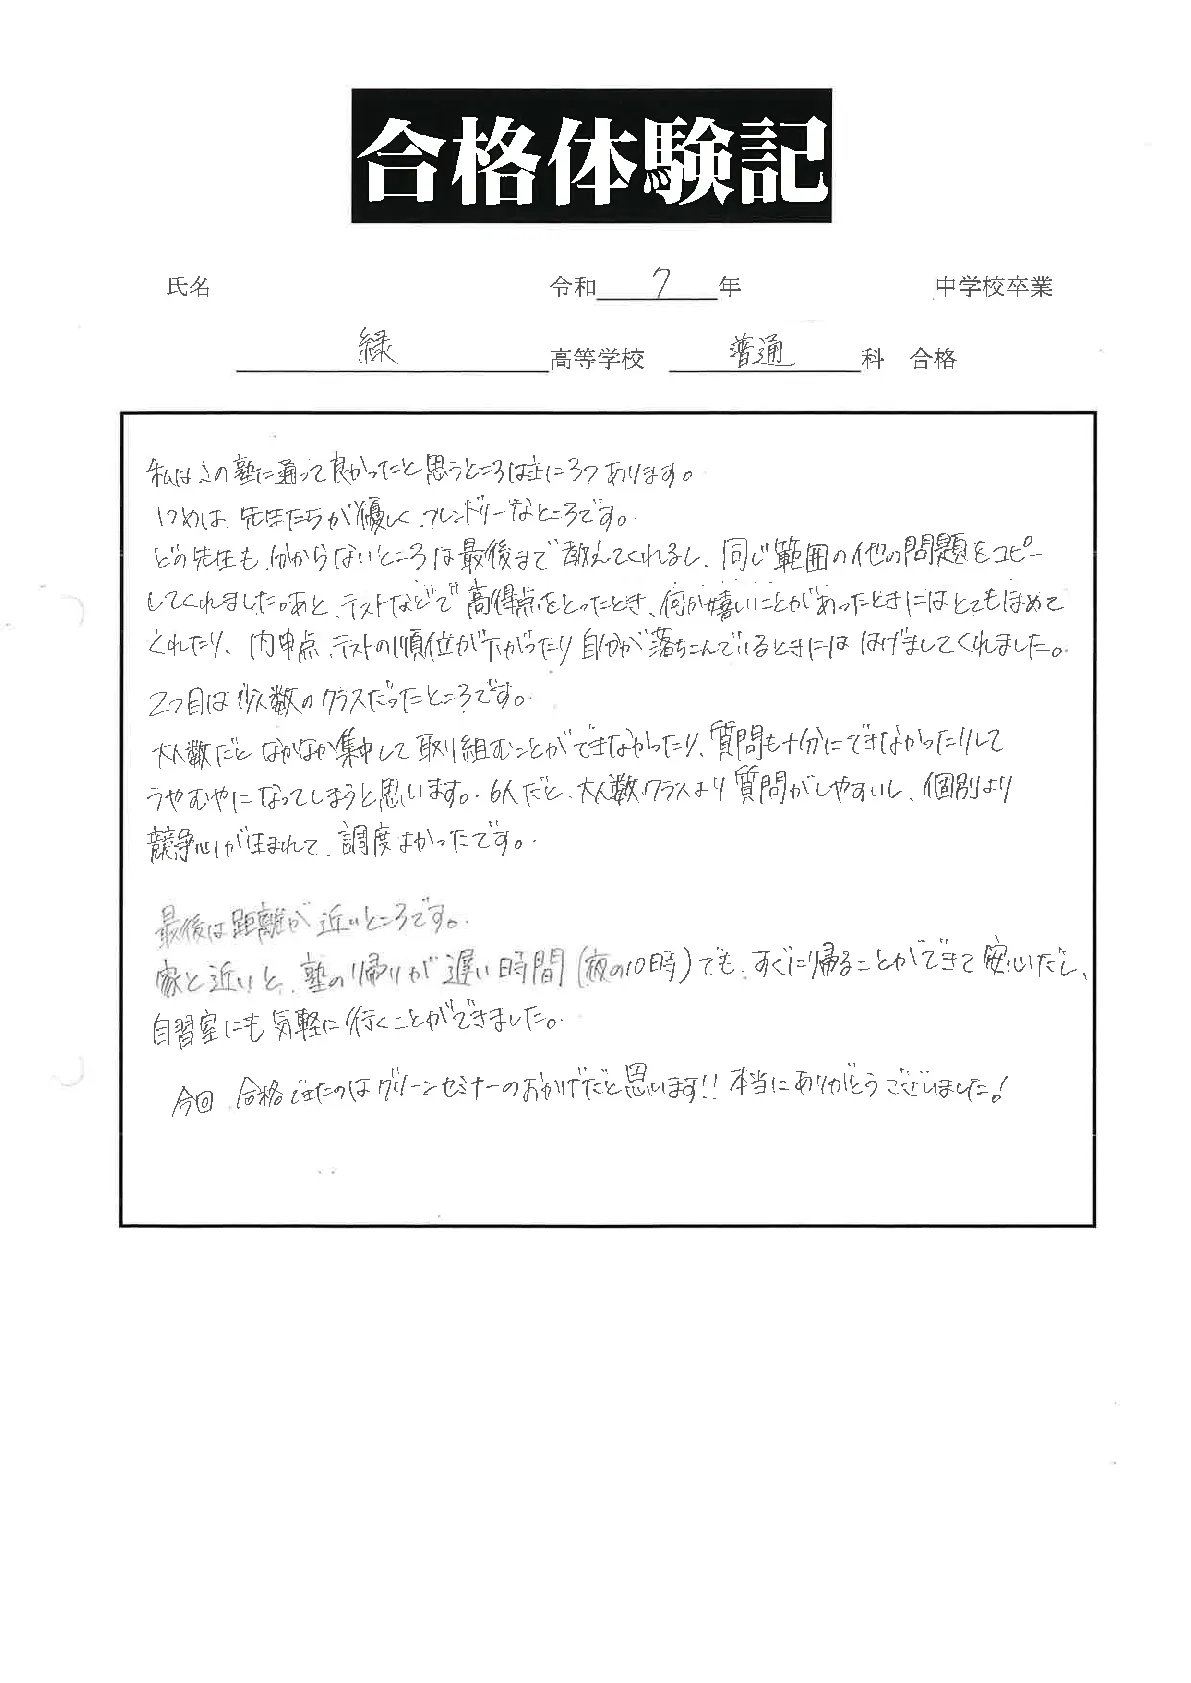 合格体験記
氏名 令和 7 年 中学校卒業
緑 高等学校 普通 科 合格
私はこの塾に通って良かったと思うところは主に3つあります。
1つめは、先生たちが優しく、フレンドリーなところです。
どの先生も、分からないところは最後まで教えてくれるし、同じ範囲の他の問題をコピー
してくれました。あと、テストなどで高得点をとったとき、何か嬉しいことがあったときにはとてもほめて
くれたり、内申点、テストの順位が下がったり自分が落ちこんでいるときには はげましてくれました。
2つ目は少人数のクラスだったところです。
大人数だと なかなか集中して取り組むことができなかったり、質問も十分にできなかったりして
うやむやになってしまうと思います。6人だと、大人数クラスより質問がしやすいし、個別より
競争心が生まれて、調度よかったです。
最後は距離が近いところです。
家と近いと、塾の帰りが遅い時間(夜の10時)でも、すぐに帰ることができて安心だし、
自習室にも気軽に行くことができました。
今回 合格できたのはグリーンセミナーのおかげだと思います!! 本当にありがとうございました!